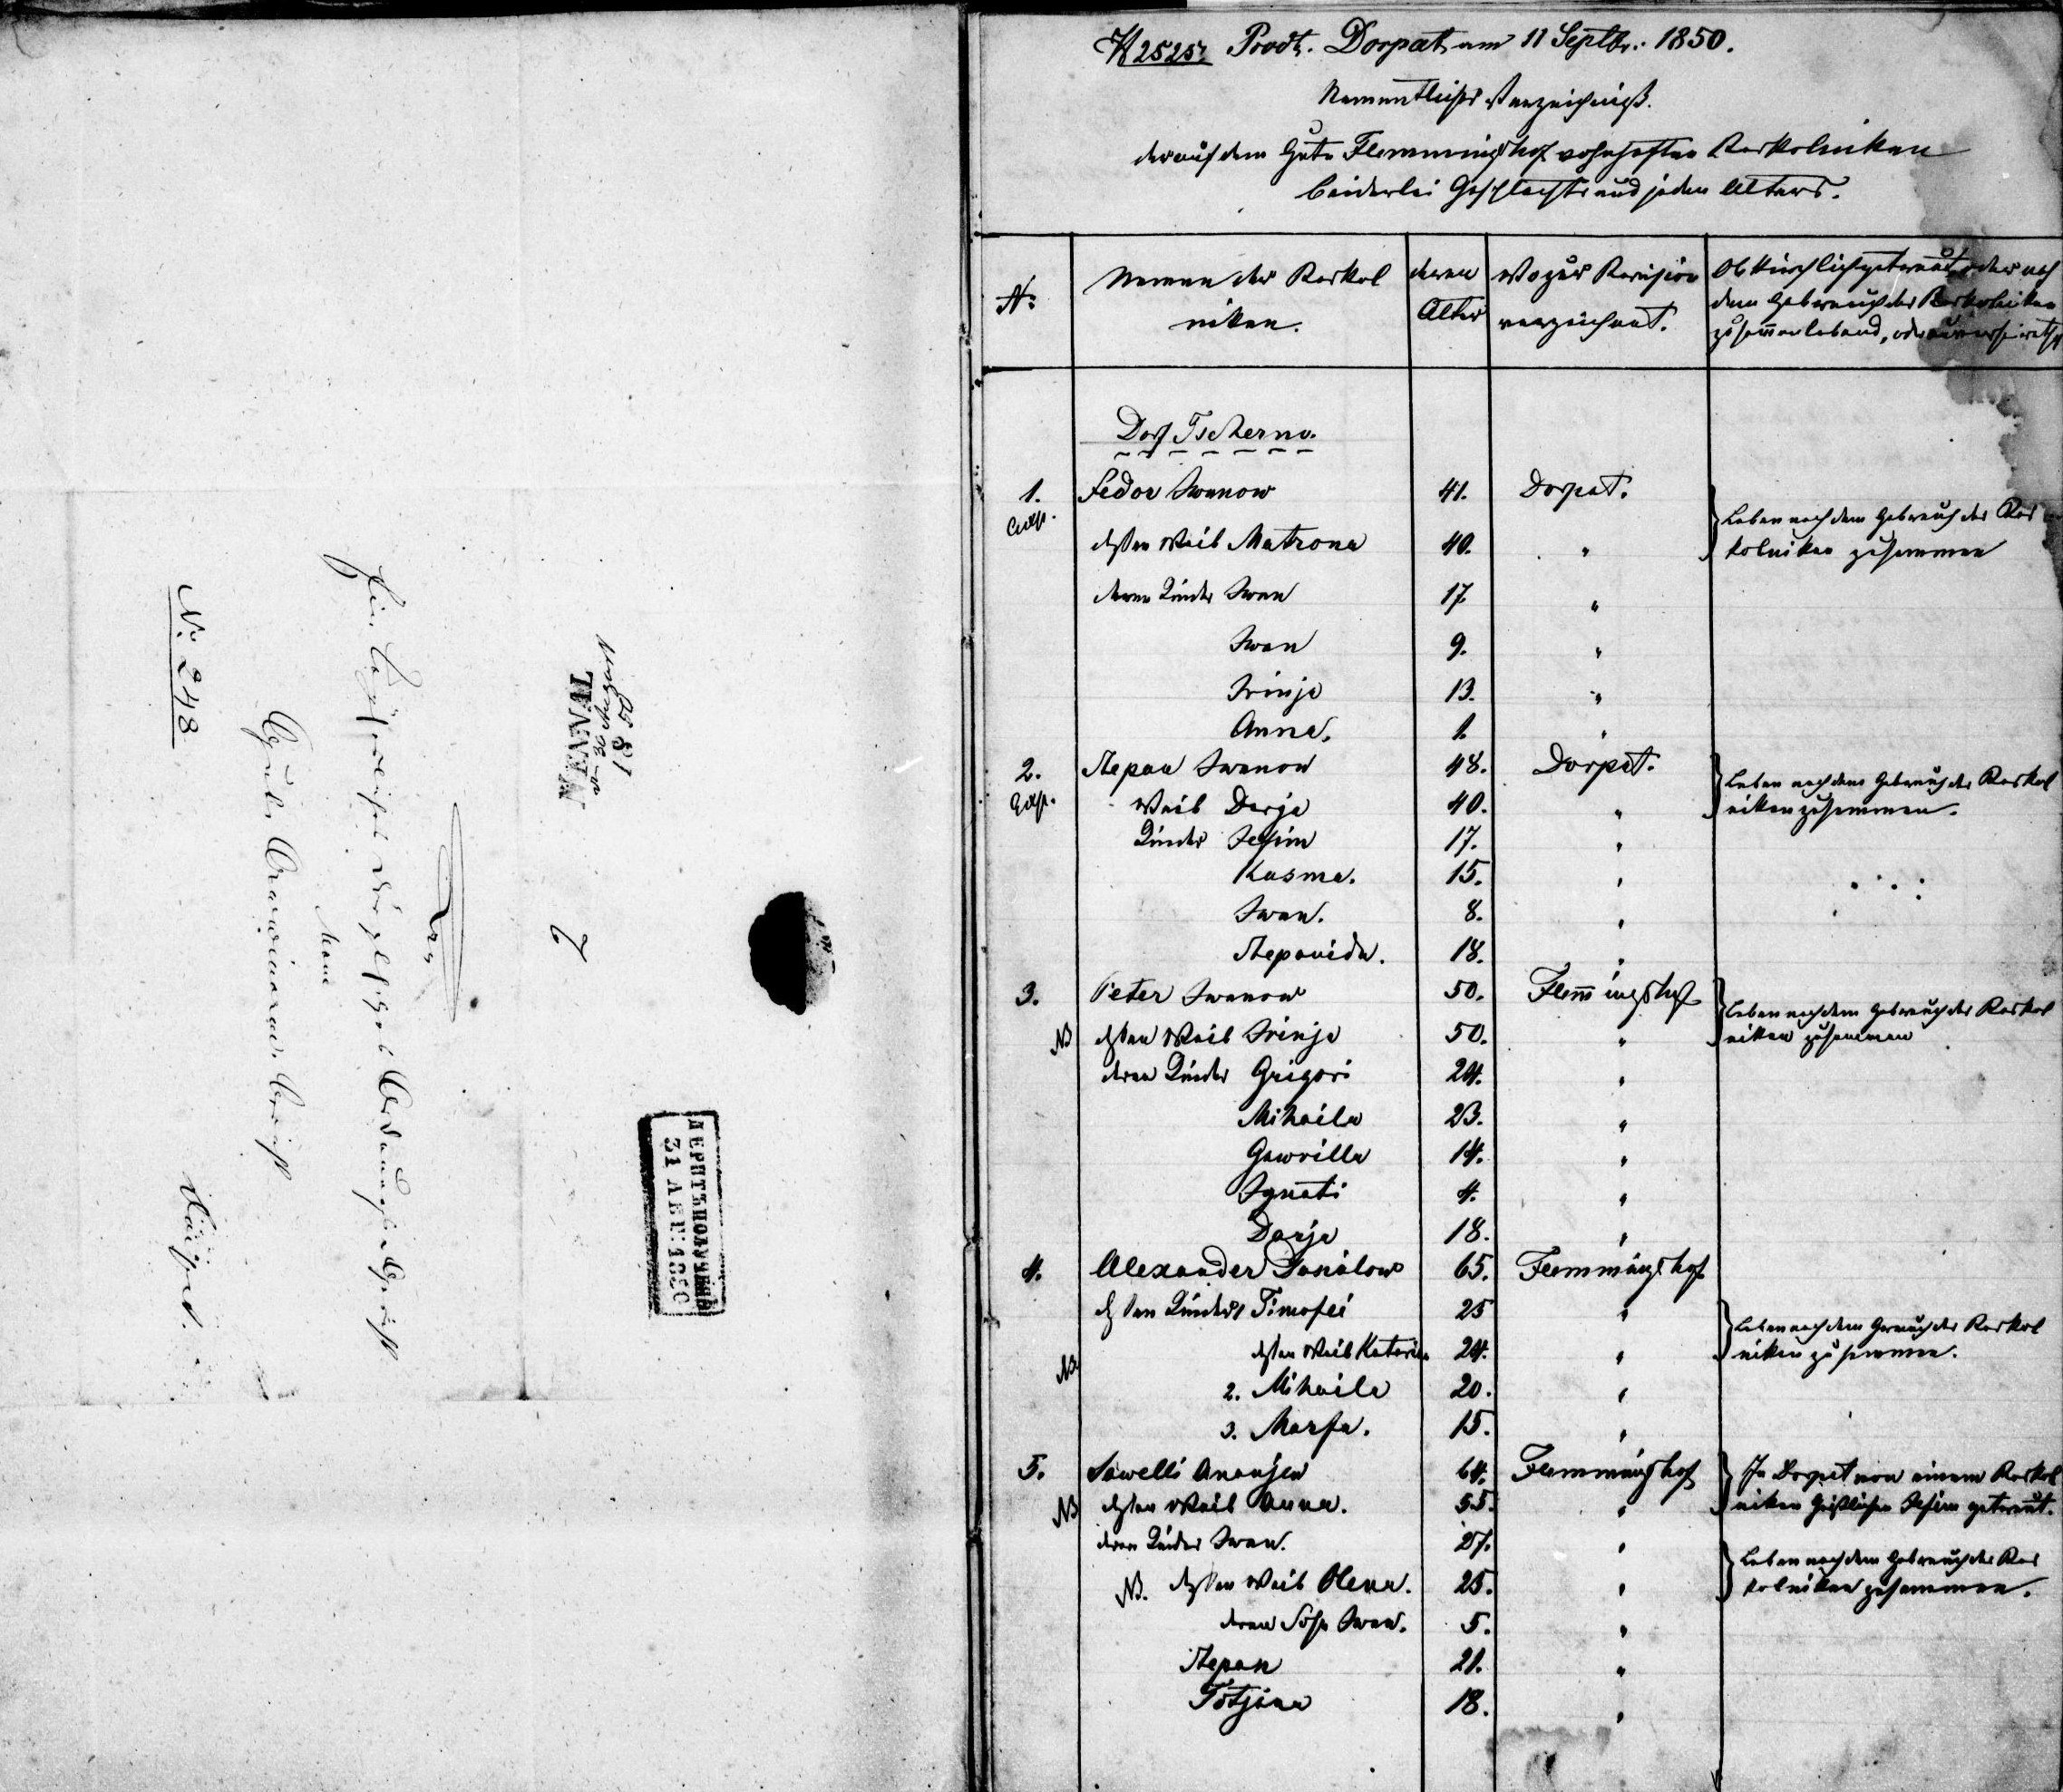 No 248
NENNAL
30 August
181
ДЕРПТЪ ПОЛУЧЕНО
31 АВГ: 1850
2525 Prodt. Dorpat am 11 Septbr: 1850.
Namentliches Verzeichniß.
der auf dem Gute Flemmingshof wohnhaften Raskolniken
beiderlei Geschlechts und jeden Alters.
No
Namen der Raskol
niken.
deren
Alter
Wo zur Revision
verzeichnet.
Ob kirchlich getraut, oder nach
dem Gebrauch der Raskolniken
zusammenlebend, oder unverheirathet
Dorf Tscherno.
1. Fedor Iwanow 41. Dorpat. Leben nach dem Gebrauch der Ras
dessen Weib Matrona 40. " kolniken zusammen
deren Kinder Iwan 17. "
Iwan 9. "
Irinja 13. "
Anna. 1. "
2. Stepan Iwanow 48. Dorpat. Leben nach dem Gebrauch der Raskol
Weib Darja 40. " niken zusammen.
Kinder Jefim 17. "
Kusma. 15. "
Iwan. 8. "
Stepanida. 18. "
3. Peter Iwanow 50. Flemingshof Leben nach dem Gebrauch der Raskol
NB dessen Weib Irinja 50. " niken zusammen
deren Kinder Grigori 24. "
Mihaila 23. "
Gawrilla 14. "
Ignati 4. "
Darja 18. "
4. Alexander Danilow 65. Flemmingshof
dessen Kinder 1 Timofei 25 " Leben nach dem Gebrauch der Raskol
NB dessen Weib Katarina 24. " niken zusammen.
2. Mihaila 20. "
3. Marfa. 15. "
5. Sawelli Ananjew 64. Flemmingshof In Dorpat von einem Raskol
NB dessen Weib Anna. 55. " niken Geistlichen Jefim getraut.
deren Kinder Iwan. 27. " Leben nach dem Gebrauch der Ras
NB. dessen Weib Olena. 25. " kolniken zusammen.
deren Sohn Iwan. 5. "
Stepan 21. "
Totjana 18. "